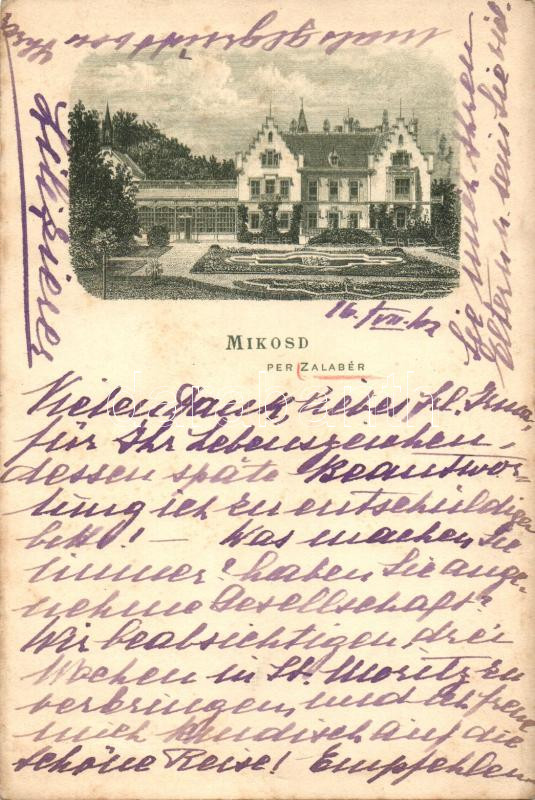 16./VII. 02
MIKOSD
PER ZALABÉR
Vielen Dank, liebes Frl. Irma,
für Ihr Lebenszeichen,
dessen späte Beantwor-
tung ich zu entschuldigen
bitte! – Was machen Sie
immer? haben Sie ange-
nehme Gesellschaft?
Wir beabsichtigen drei
Wochen in St. Moritz zu
verbringen, und ich freue
mich kindisch auf die
schöne Reise! Empfehlen
Sie mich Ihren
Eltern u. seien Sie viel-
mals gegrüßt von